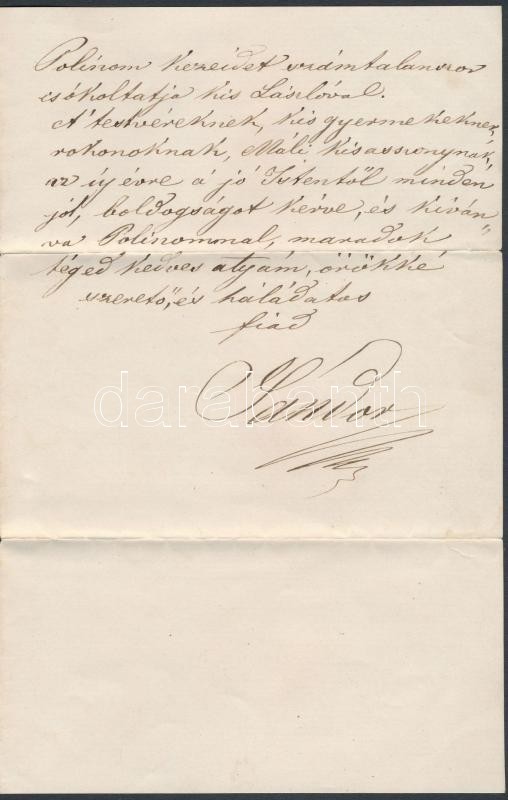 Polínom kezeidet számtalanszor
csókoltatja kis Lászlóval.
A' testvéreknek, kis gyermekeknek,
rokonoknak, Máli kisasszonynak,
az új évre a' jó Istentől minden
jót, boldogságot kérve, és kíván„
va Polínommal, maradok
téged kedves atyám, örökké
szerető, és háládatos
fiad
Sándor
darabanth